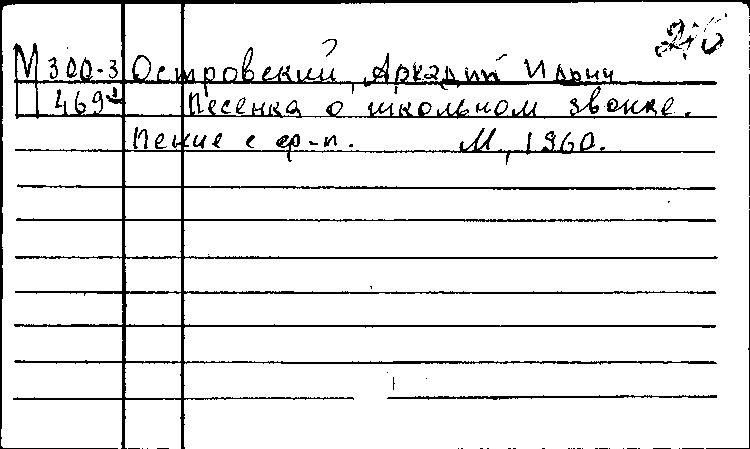 М 300-3 Островский, Аркадий Ильич
469 Песенка о школьном звонке.
Пение с ф-п. М., 1960.